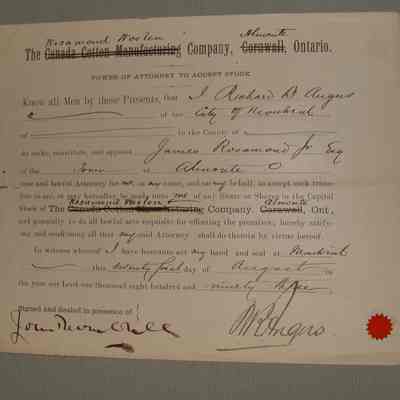 Rosamond Woolen Almonte
The Canada Cotton Manufacturing Company, Cornwall, Ontario.
POWER OF ATTORNEY TO ACCEPT STOCK
Know all Men by these Presents, that I Richard B. Angus
of the City of Montreal
of in the County of
do make, constitute, and appoint James Rosamond Jr Esq
of the Town of Almonte
true and lawful Attorney for me, in my name, and on my behalf, to accept such trans-
fers as are, or may hereafter, be made unto me of any Share or Shares in the Capital
Rosamond Woolen Almonte
Stock of The Canada Cotton Manufacturing Company. Cornwall, Ont.,
and generally to do all lawful acts requisite for effecting the premises; hereby ratify-
ing and confirming all that my said Attorney shall do therein by virtue hereof.
In witness whereof I have hereunto set my hand and seal at Montreal
this twenty first day of August in
the year our Lord one thousand eight hundred and ninety three
Signed and sealed in presence of
R B Angus